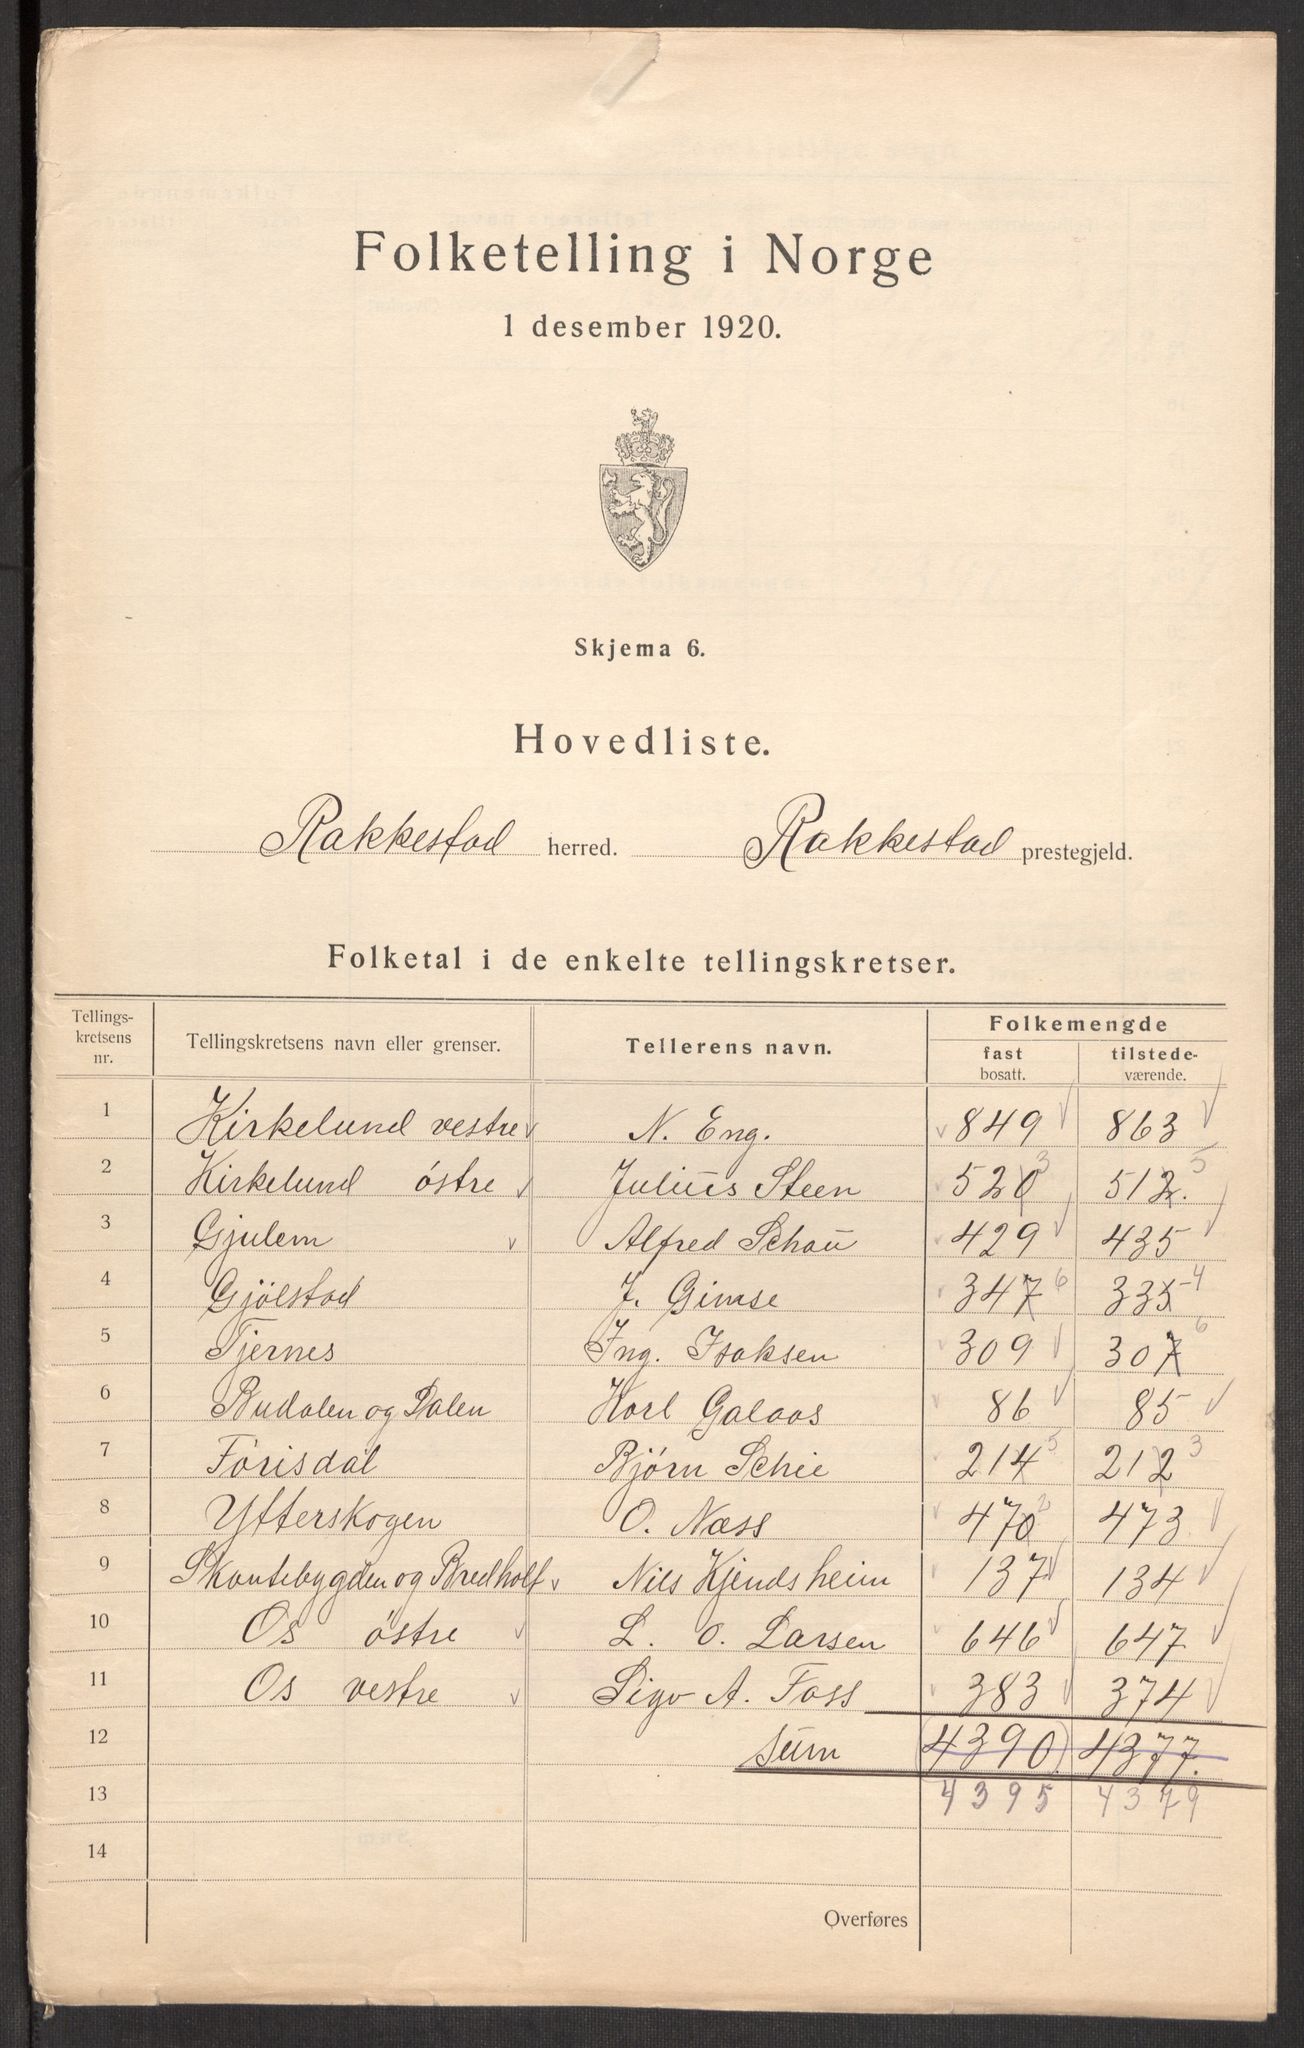 Folketelling i Norge
1 desember 1920.
Skjema 6.
Hovedliste.
Rakkestad herred. Rakkestad prestegjeld.
Folketal i de enkelte tellingskretser.
Tellings-kretsens nr. Tellingskretsens navn eller grenser. Tellerens navn. Folkemengde
fast bosatt. tilstede-værende.
1 Kirkelund vestre N. Eng. 849 863
2 Kirkelund østre Julius Steen 520 3 512. 5
3 Gjulem Alfred Schou 429 435
4 Gjølstad J. Gimse 347 6 335 4
5 Tjernes Ing. Isaksen 309 307 6
6 Budalen og Dalen Karl Galaas 86 85
7 Førisdal Bjørn Schie 214 5 212 3
8 Ytterskogen O. Næss 470 2 473
9 Skautebygden og Bredholt Nils Kjendsheim 137 134
10 Os østre L. O. Larsen 646 647
11 Os vestre Sigv A. Foss 383 374
12 Sum 4390 4377.
13 4395 4379
14
Overføres